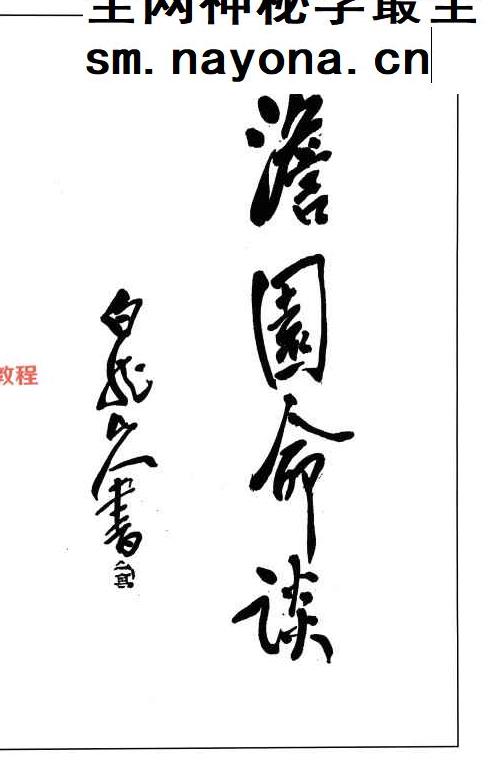 全网神秘学最全
sm.nayona.cn
澹園命談
白龍山人書
教程